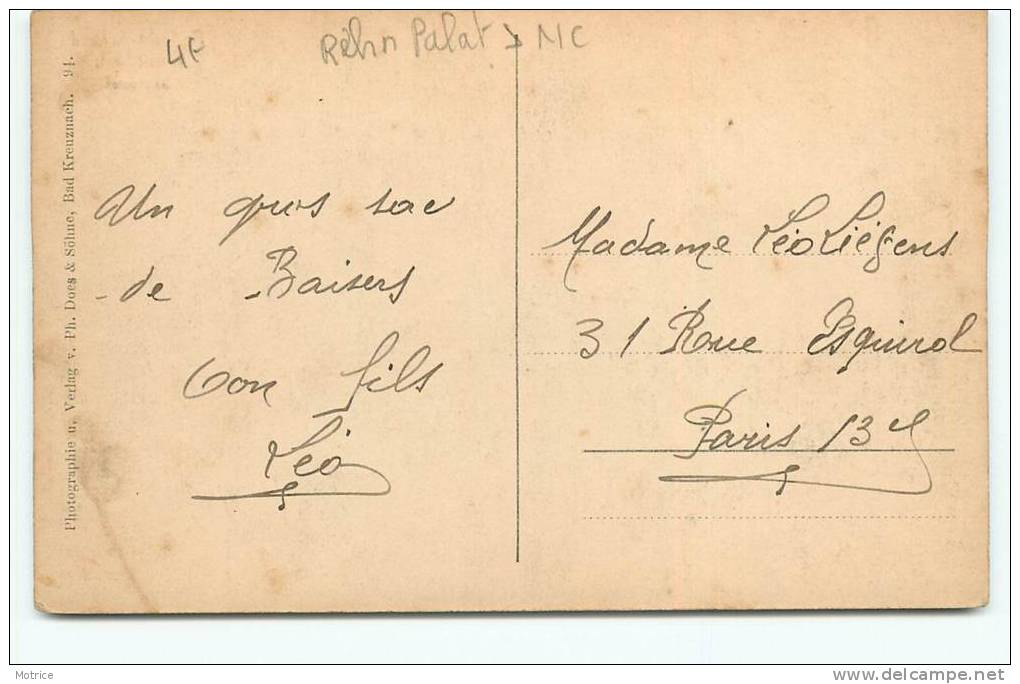 4F
Réhn Palat → MC
Photographie u. Verlag v. Ph. Does & Söhne, Bad Kreuznach. 94.
Un gros sac
de Baisers
Ton fils
Léo
Madame Léo Liégens
31 Roue Esquirol
Paris 13e
Motrice
www.delcampe.net